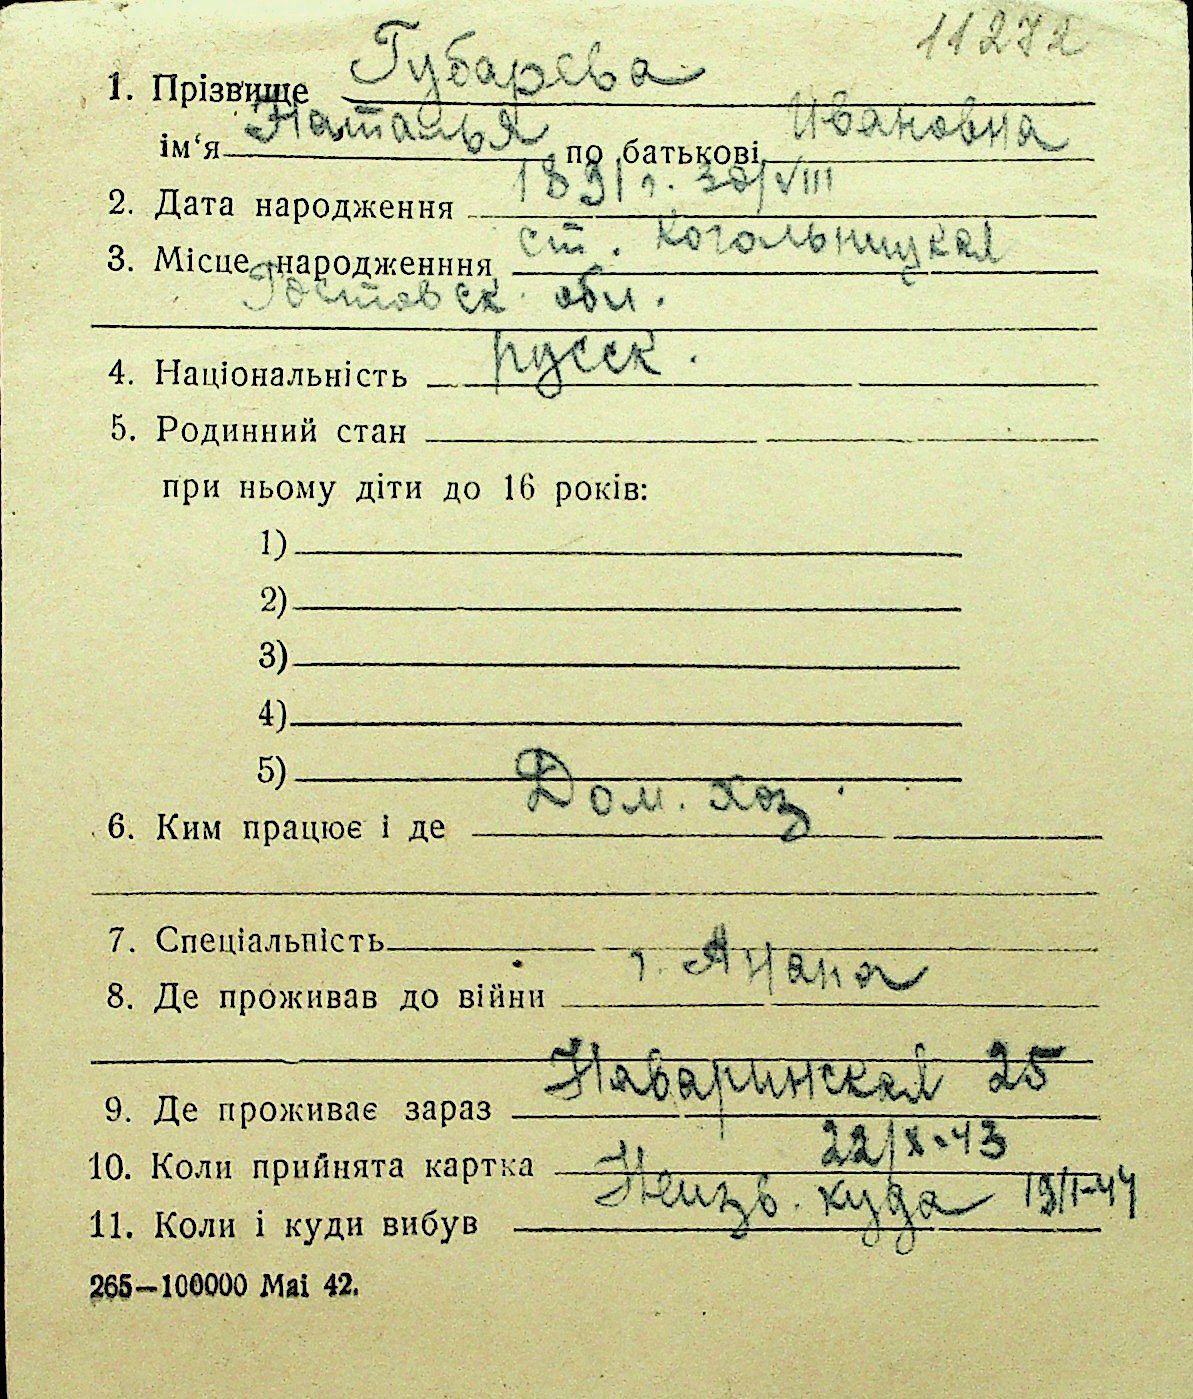 11272
1. Прізвище Губарева
ім‘я Наталья по батькові Ивановна
2. Дата народження 1891 г. 30/VIII
3. Місце народженння ст. Когольницкая
Ростовск. обл.
4. Національність русск.
5. Родинний стан
при ньому діти до 16 років:
1)
2)
3)
4)
5)
6. Ким працює і де Дом. хоз.
7. Спеціальність
8. Де проживав до війни г. Анапа
9. Де проживає зараз Наваринская 25
10. Коли прийнята картка 22/X-43
11. Коли і куди вибув Неизв. куда 19/I-44
265—100000 Mai 42.